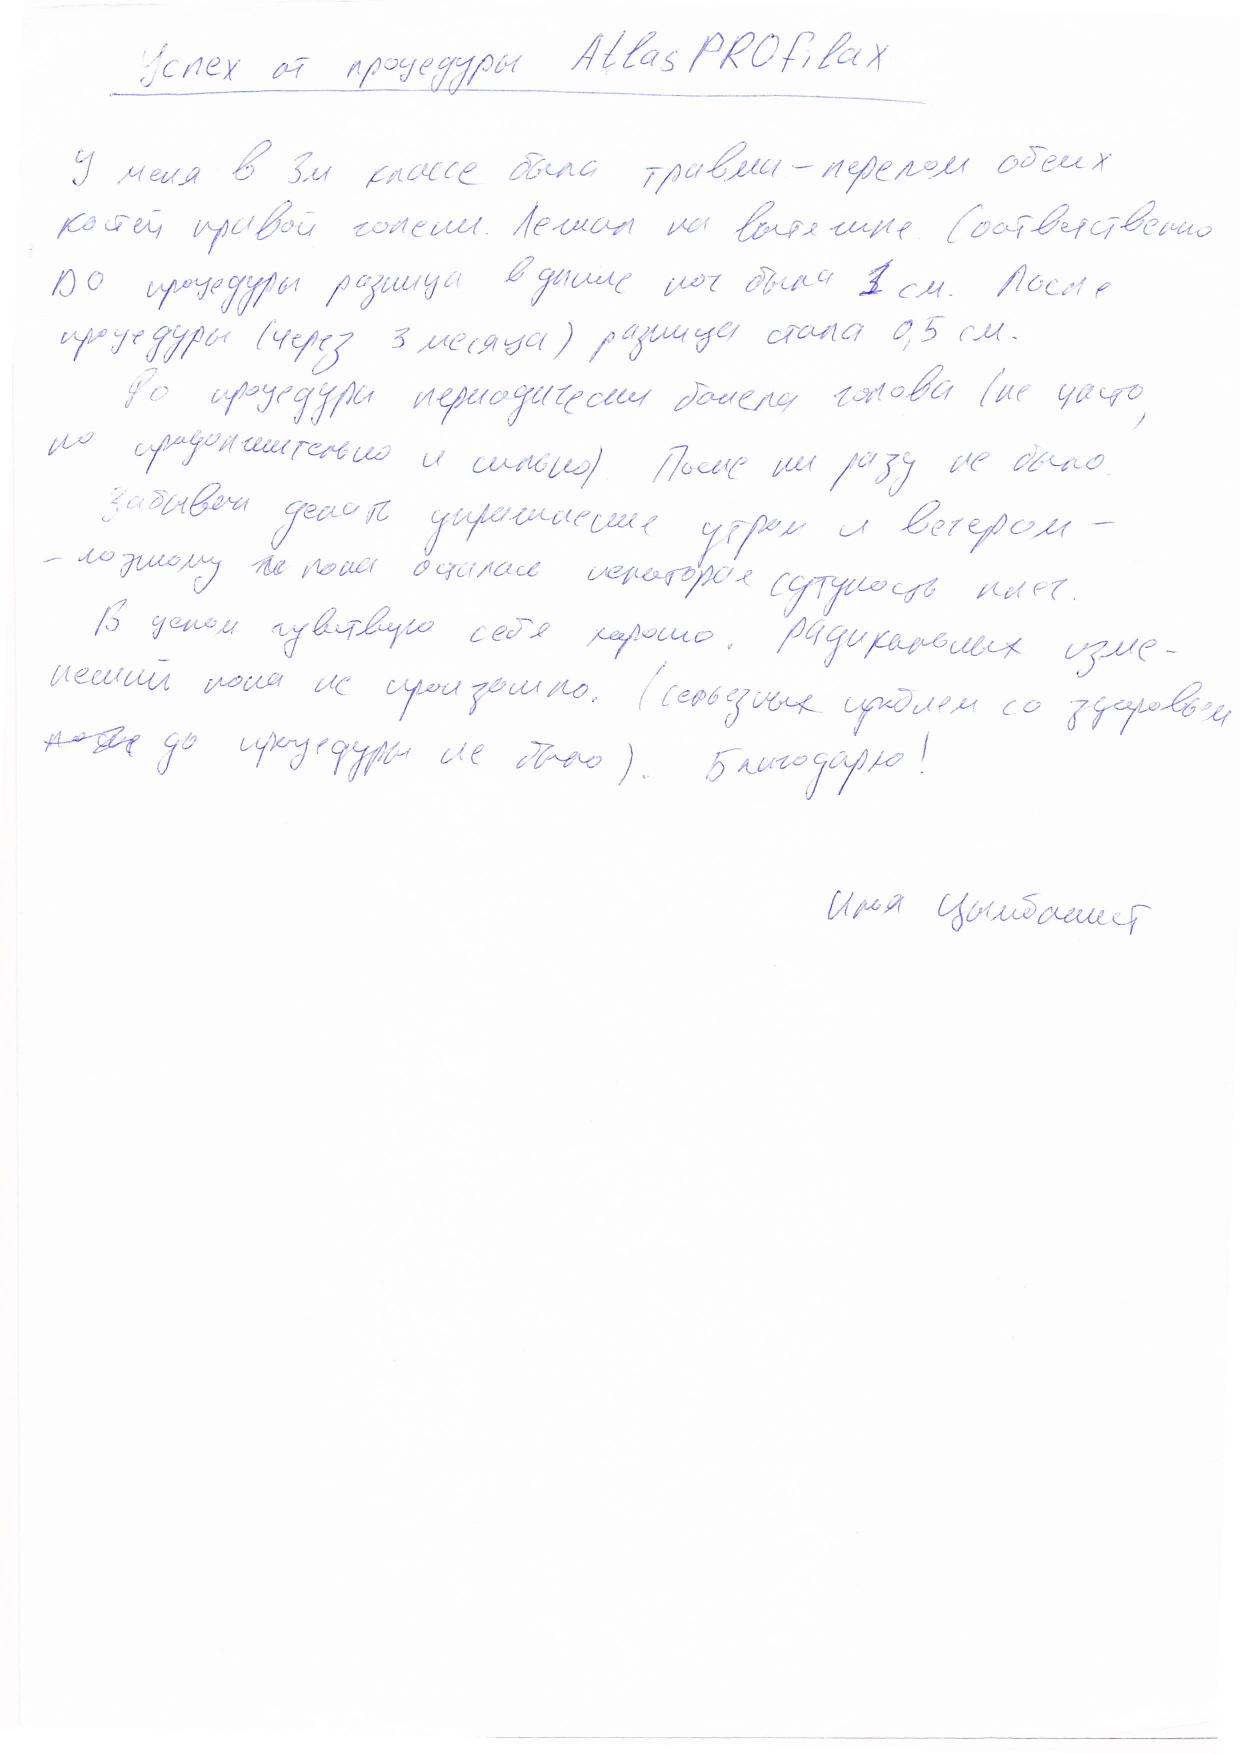 Успех от процедуры AtlasPROfilax
У меня в 3м классе была травма - перелом обеих
костей правой голени. Лежал на вытяжке. Соответственно
ДО процедуры разница в длине ног была 1 см. После
процедуры (через 3 месяца) разница стала 0,5 см.
До процедуры периодически болела голова (не часто,
но продолжительно и сильно). После ни разу не было.
Забывал делать упражнение утром и вечером -
- поэтому пока осталась некоторая сутулость плеч.
В целом чувствую себя хорошо. Радикальных изме-
нений пока не произошло. (серьезных проблем со здоровьем
до процедуры не было). Благодарю!
Илья